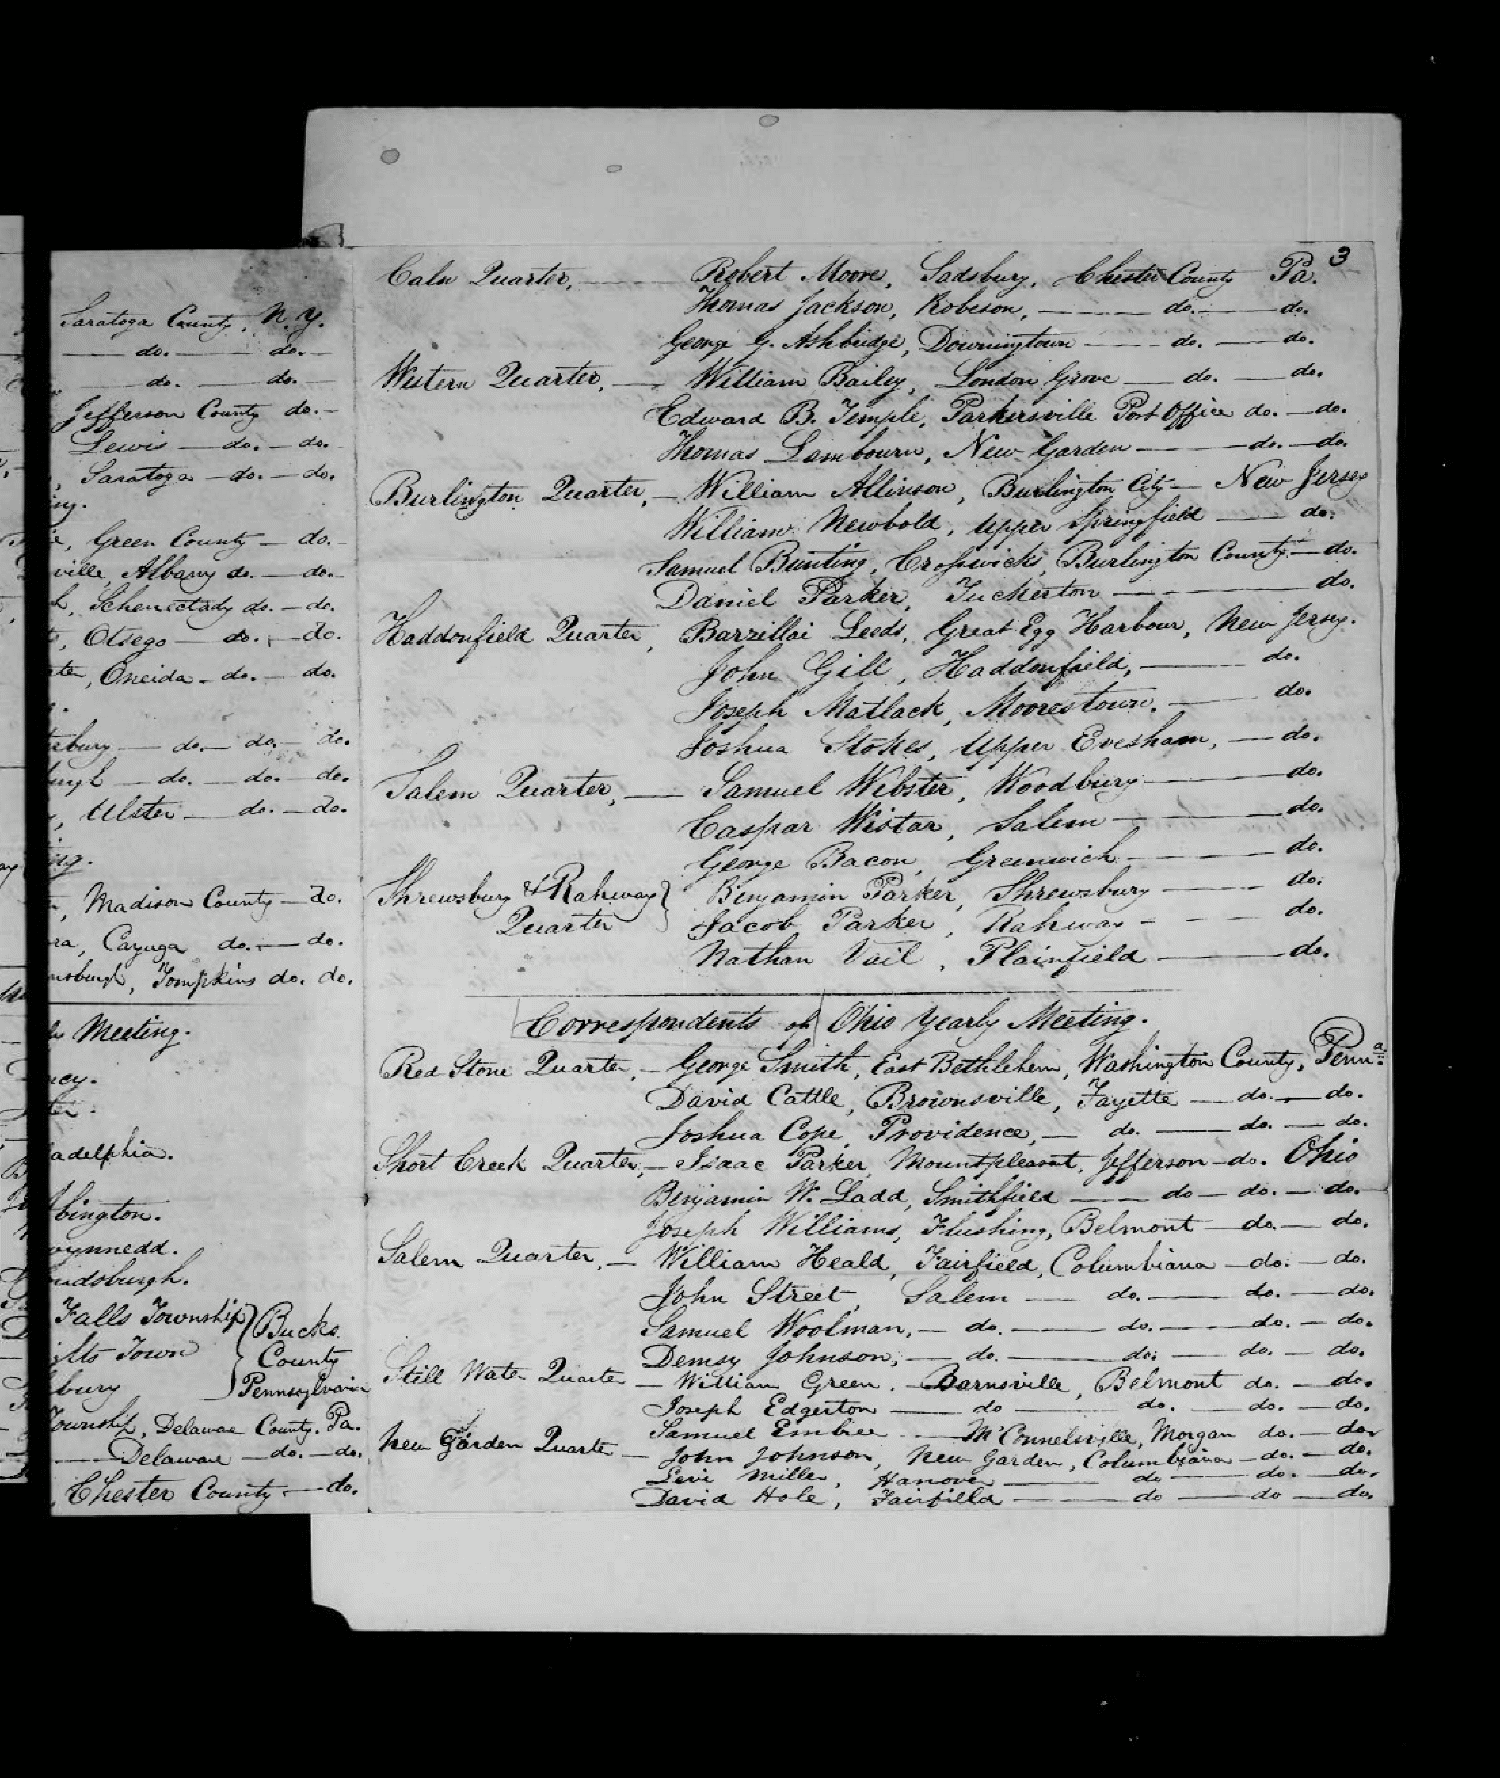 3
Caln Quarter, — Robert Moore, Sadsbury, Chester County Pa.
Thomas Jackson, Robeson, — do. — do.
George G. Ashbridge, Downingtown — do. — do.
Western Quarter, — William Bailey, London Grove — do. — do.
Edward B. Temple, Parkersville Post Office do. — do.
Thomas Lambourn, New Garden — do. — do.
Burlington Quarter, — William Allinson, Burlington City — New Jersey
William Newbold, Upper Springfield — do.
Samuel Bunting, Crosswicks, Burlington County — do.
Daniel Parker, Tuckerton — do.
Haddonfield Quarter, Barzillai Leeds, Great Egg Harbour, New Jersey.
John Gill, Haddonfield, — do.
Joseph Matlack, Moorestown. — do.
Joshua Stokes, Upper Evesham, — do.
Salem Quarter, — Samuel Webster, Woodbury — do.
Caspar Wistar, Salem — do.
George Bacon, Greenwich — do.
Shrewsbury & Rahway} Benjamin Parker, Shrewsbury — do.
Quarter Jacob Parker, Rahway — do.
Nathan Vail, Plainfield — do.
Correspondents of Ohio Yearly Meeting.
Red Stone Quarter, — George Smith, East Bethlehem, Washington County, Penna.
David Cattle, Brownsville, Fayette — do. — do.
Joshua Cope, Providence, — do. — do. — do.
Short Creek Quarter, — Isaac Parker, Mountpleasant, Jefferson — do. Ohio
Benjamin W. Ladd, Smithfield — do — do. — do.
Joseph Williams, Flushing, Belmont — do. — do.
Salem Quarter, — William Heald, Fairfield, Columbiana — do. — do.
John Street, Salem — do. — do. — do.
Samuel Woolman, — do. — do. — do. — do.
Demsy Johnson, — do. — do. — do. — do.
Still Water Quarter — William Green. — Barnsville, Belmont do. — do.
Joseph Edgerton — do — do. — do. — do.
Samuel Embree — McConnelsville, Morgan do. — do.
New Garden Quarter — John Johnson, New Garden, Columbiana — do. — do.
Levi Miller, Hanover — do — do. — do.
David Hole, Fairfield — do — do — do.
Saratoga County, N.Y.
— do. — do. —
— do. — do. —
Jefferson County do. —
Lewis — do. — do.
, Saratoga — do. — do.
, Green County — do.
ville, Albany do. — do. —
, Schenectady do. — do.
, Otsego — do. — do.
, Oneida — do. — do.
bury — do. — do. — do.
burgh — do. — do. — do.
, Ulster — do. — do.
, Madison County — do.
, Cayuga do. — do.
nsburgh, Tompkins do. do.
Meeting.
adelphia.
bington.
wynnedd.
udsburgh.
Falls Township} Bucks
Town } County
bury } Pennsylvania
Township, Delaware County, Pa.
— Delaware — do. — do.
, Chester County — do.